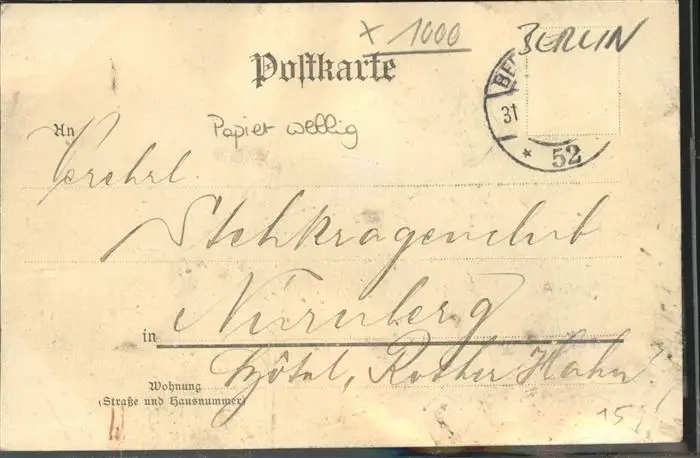 x 1000
BERLIN
Postkarte
BE
31
* 52
An
Papier wellig
Verehrl.
Stehkragenclub
in Nürnberg
Hôtel, Rother Hahn
Wohnung
(Straße und Hausnummer)
15